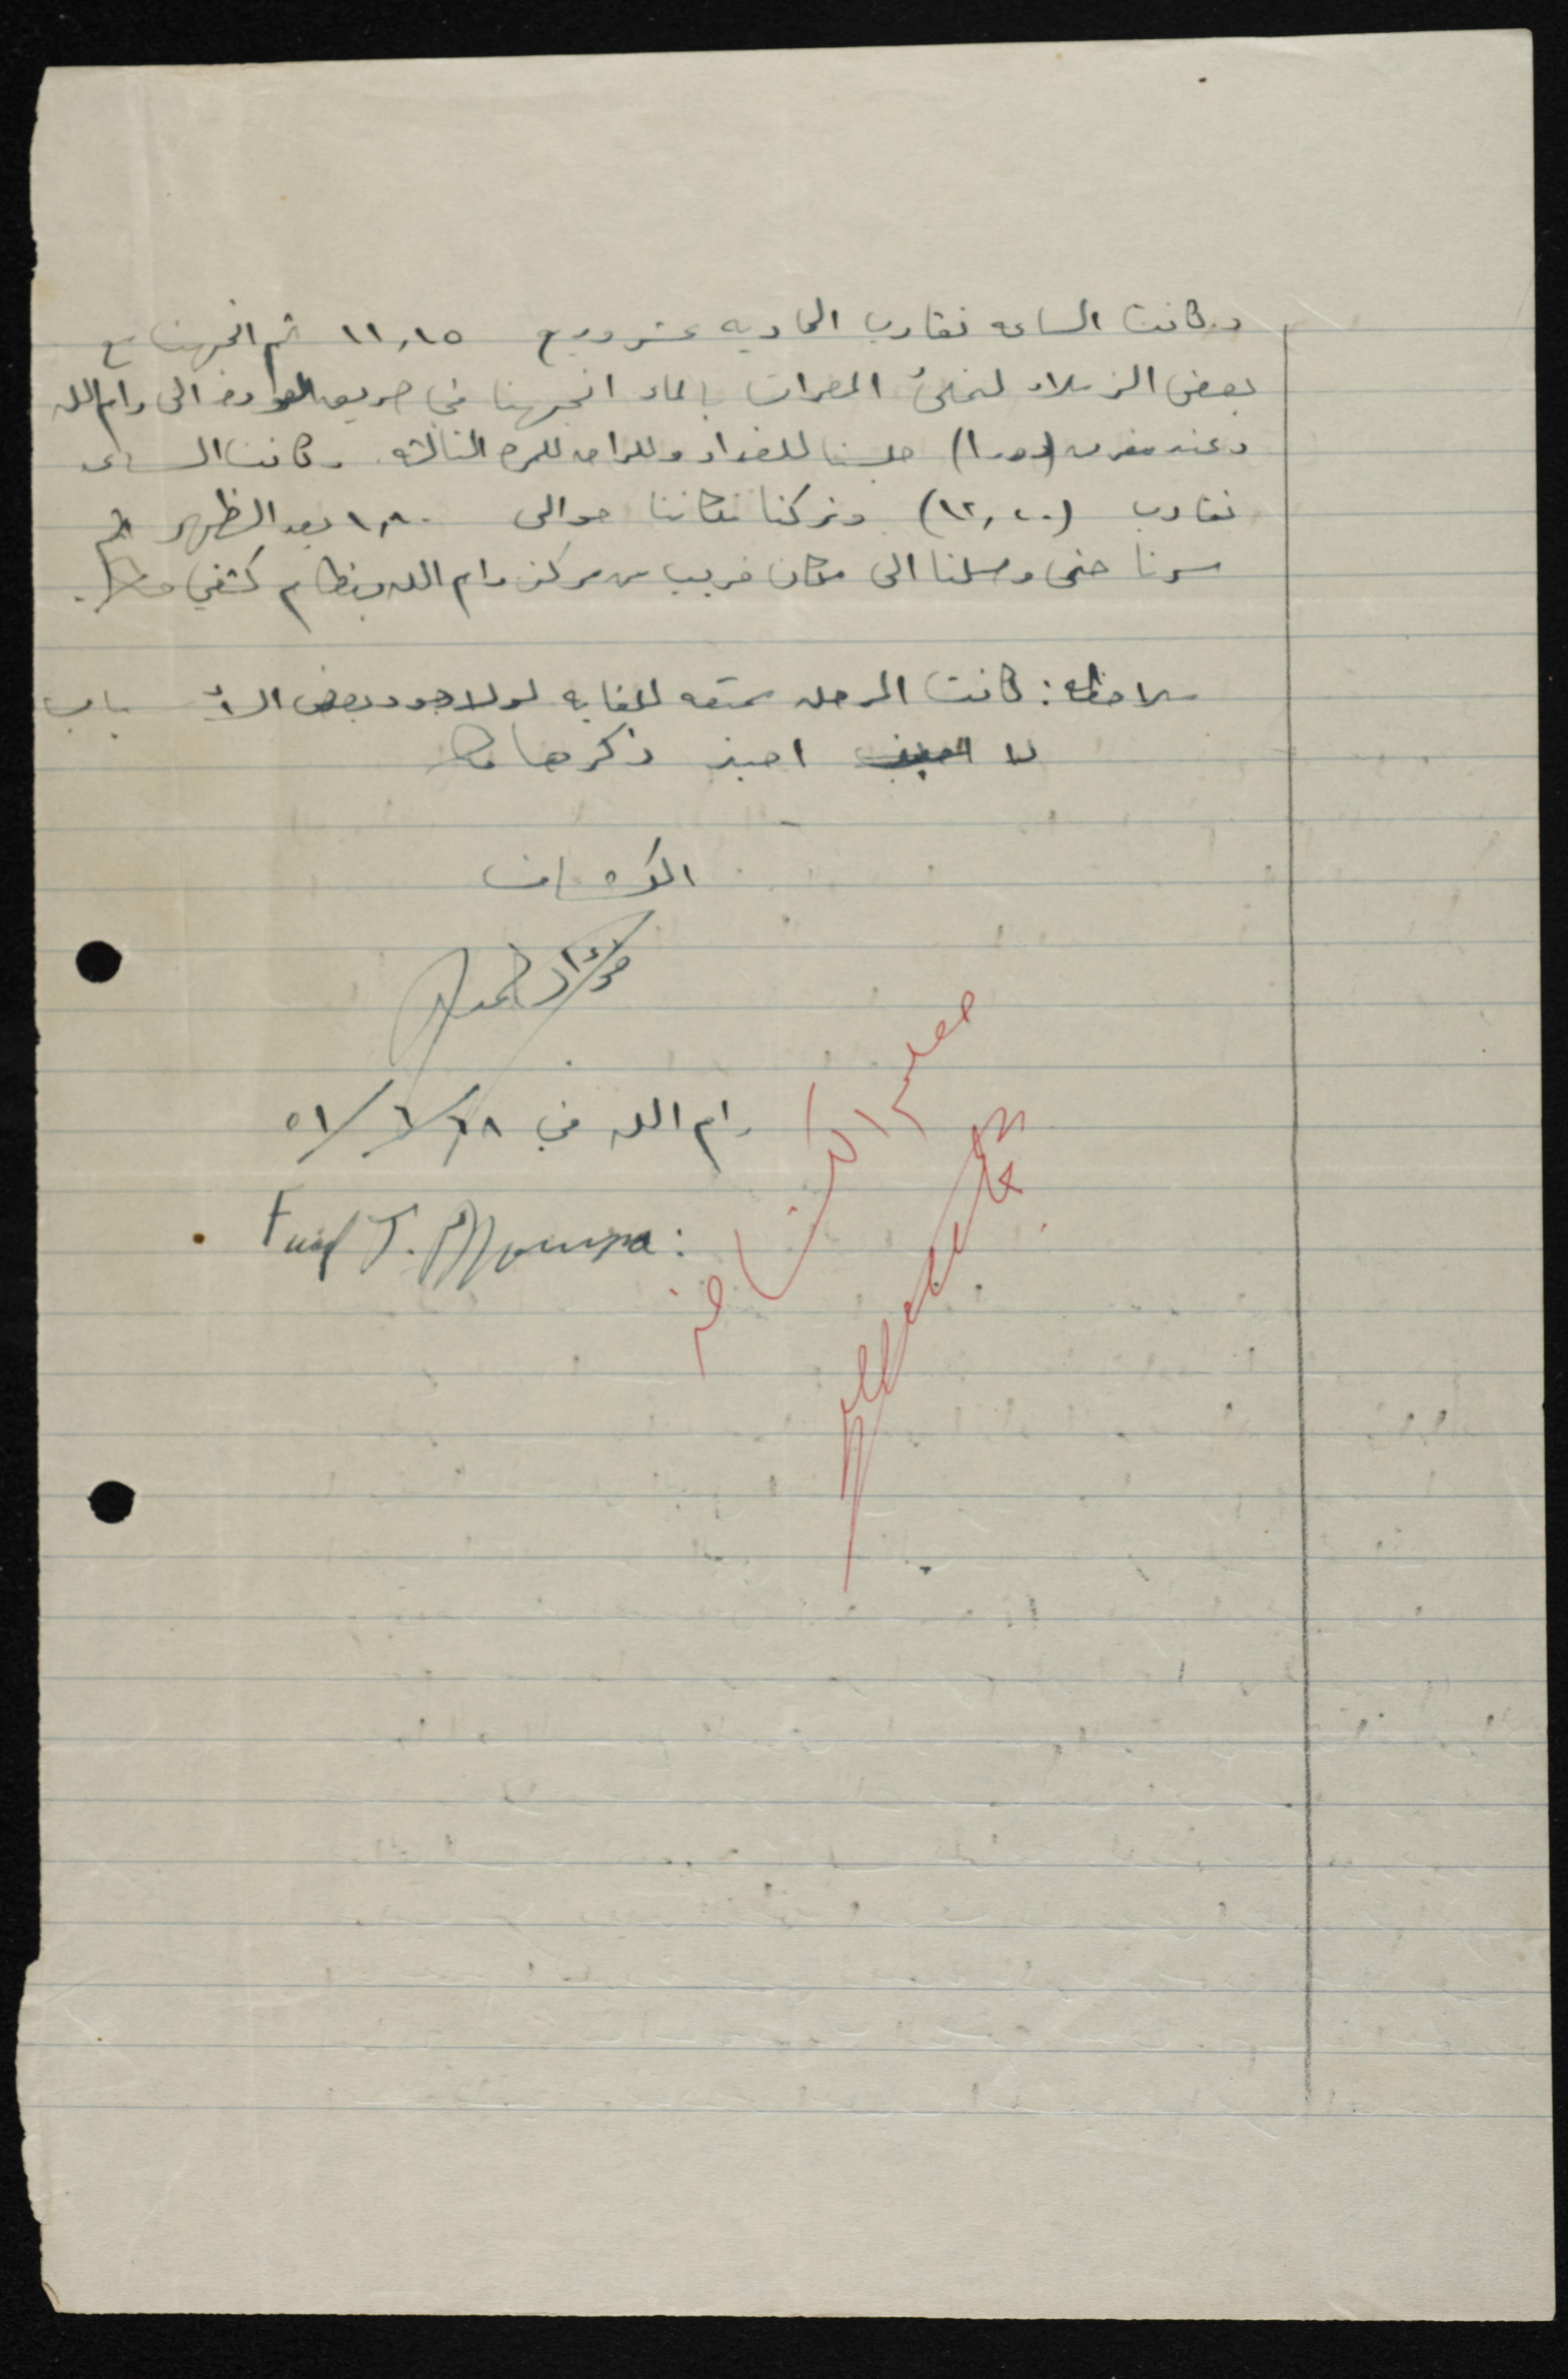 وكانت الساعه تقارب الحاديه عشر وربع ١١,١٥ ثم اتجهنا مع
بعض الزملاء لنملئ المطرات بالماء اتجهنا في طريق العوده الى رام الله
وعند مفرق (دورا) جلسنا للغداء وللراحه للمره الثالثه. وكانت الساعه
تقارب (١٢,٢٠) وتركنا مكاننا حوالى بعد الظهر ثم
سرنا حتى وصلنا الى مكان قريب من مركز رام الله وبنظام كشفي
ملاحظه: كانت الرحله ممتعه للغايه لولا وجود بعض الأسباب
لا احبذ ذكرها
الكشاف
فؤاد
رام الله في ٢٨/٦/٥١
Fuad T.